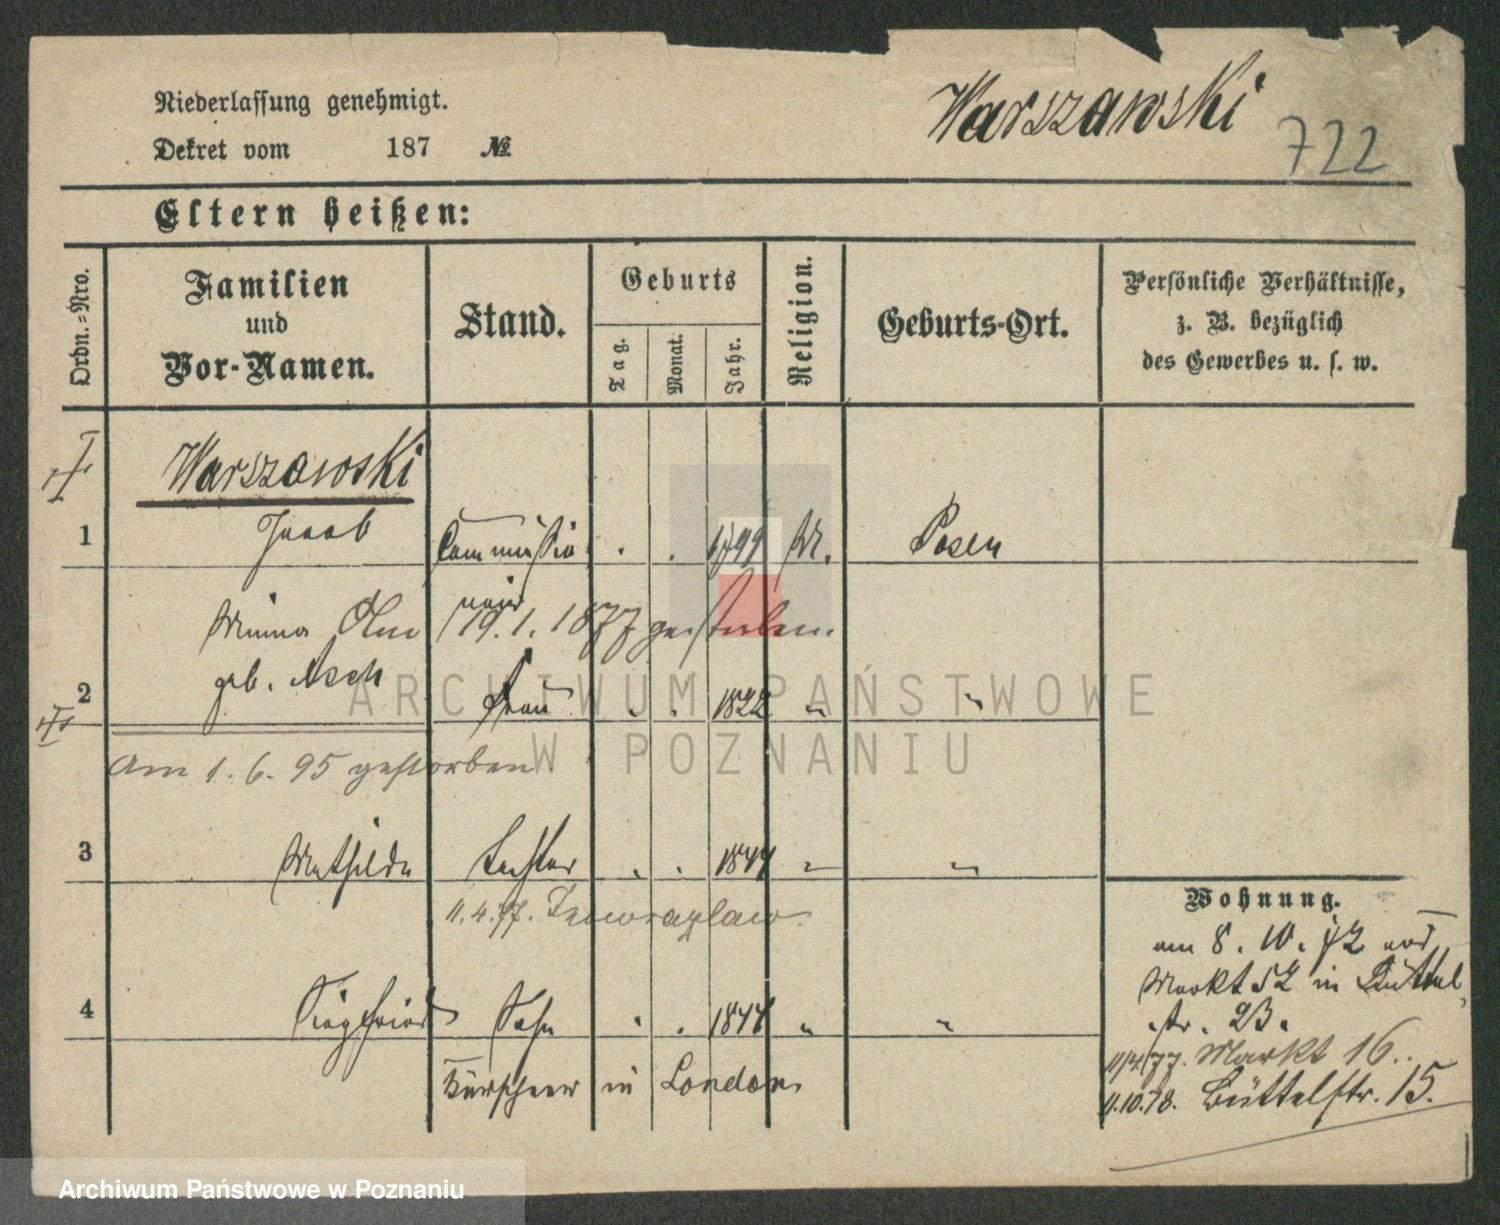 Warszawski
722
Niederlassung genehmigt.
Dekret vom 187 №
Eltern heißen:
Ordn.-Nro.
Familien
und
Vor-Namen.
Stand.
Geburts
Tag.
Monat.
Jahr.
Religion.
Geburts-Ort.
Persönliche Verhältnisse,
z. B. bezüglich
des Gewerbes u. s. w.
Warszawski
1 Jacob Commissio 1799 M. Posen
när
19.1.1877 gestorben.
Minna
geb. Asch
2 Frau 1822 " "
Am 1.6.95 gestorben.
3 Mathilde Tochter " "
11.4.77. Inowrazlaw.
4 Siegfried Sohn " "
Kürschner in London.
Wohnung.
am 8. 10. 72 von
Markt 52 in Büttel
str. 23.
11/4/77. Markt 16.
11.10.78. Büttelstr. 15.
ARCHIWUM PAŃSTWOWE
W POZNANIU
Archiwum Państwowe w Poznaniu